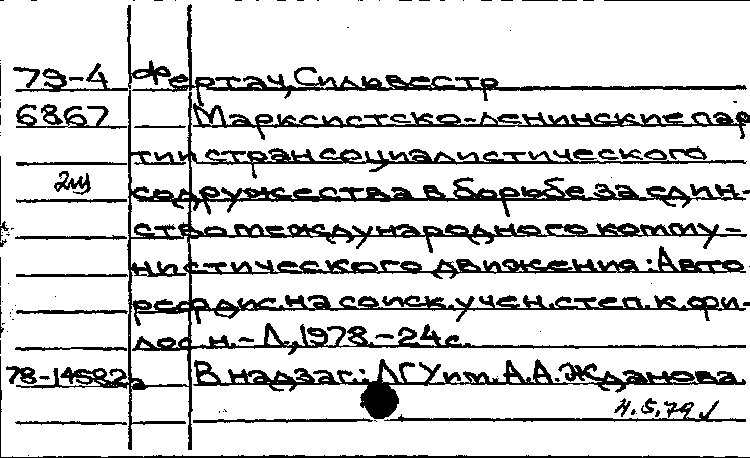 79-4 Фертач, Сильвестр
6867 Марксистско-ленинские пар
тии стран социалистического
2щ содружества в борьбе за един-
ство международного комму-
нистического движения: Авто
реф дис. на соиск. учен. степ. к. фи-
лос. н. - Л., 1978. - 24 с.
78-14582а В надзаг.: ЛГУ им. А.А. Жданова.
4.5.79